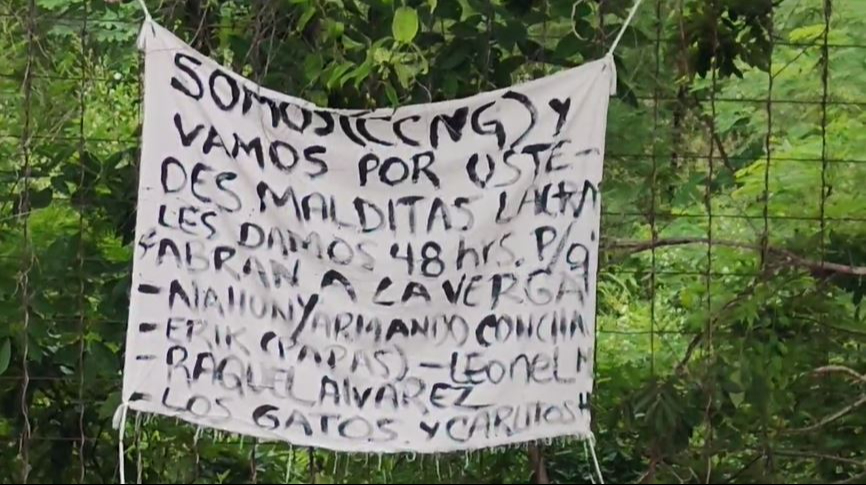 SOMOS (CCNG) Y
VAMOS POR USTE-
DES MALDITAS LACRA
LES DAMOS 48 hrs. P/q'
ABRAN A LA VERGA
- NAHUN Y ARMANDO CONCHA
- ERIK (PAPAS) - LEONEL
- RAQUEL ALVAREZ
- LOS GATOS. Y CARLITOS